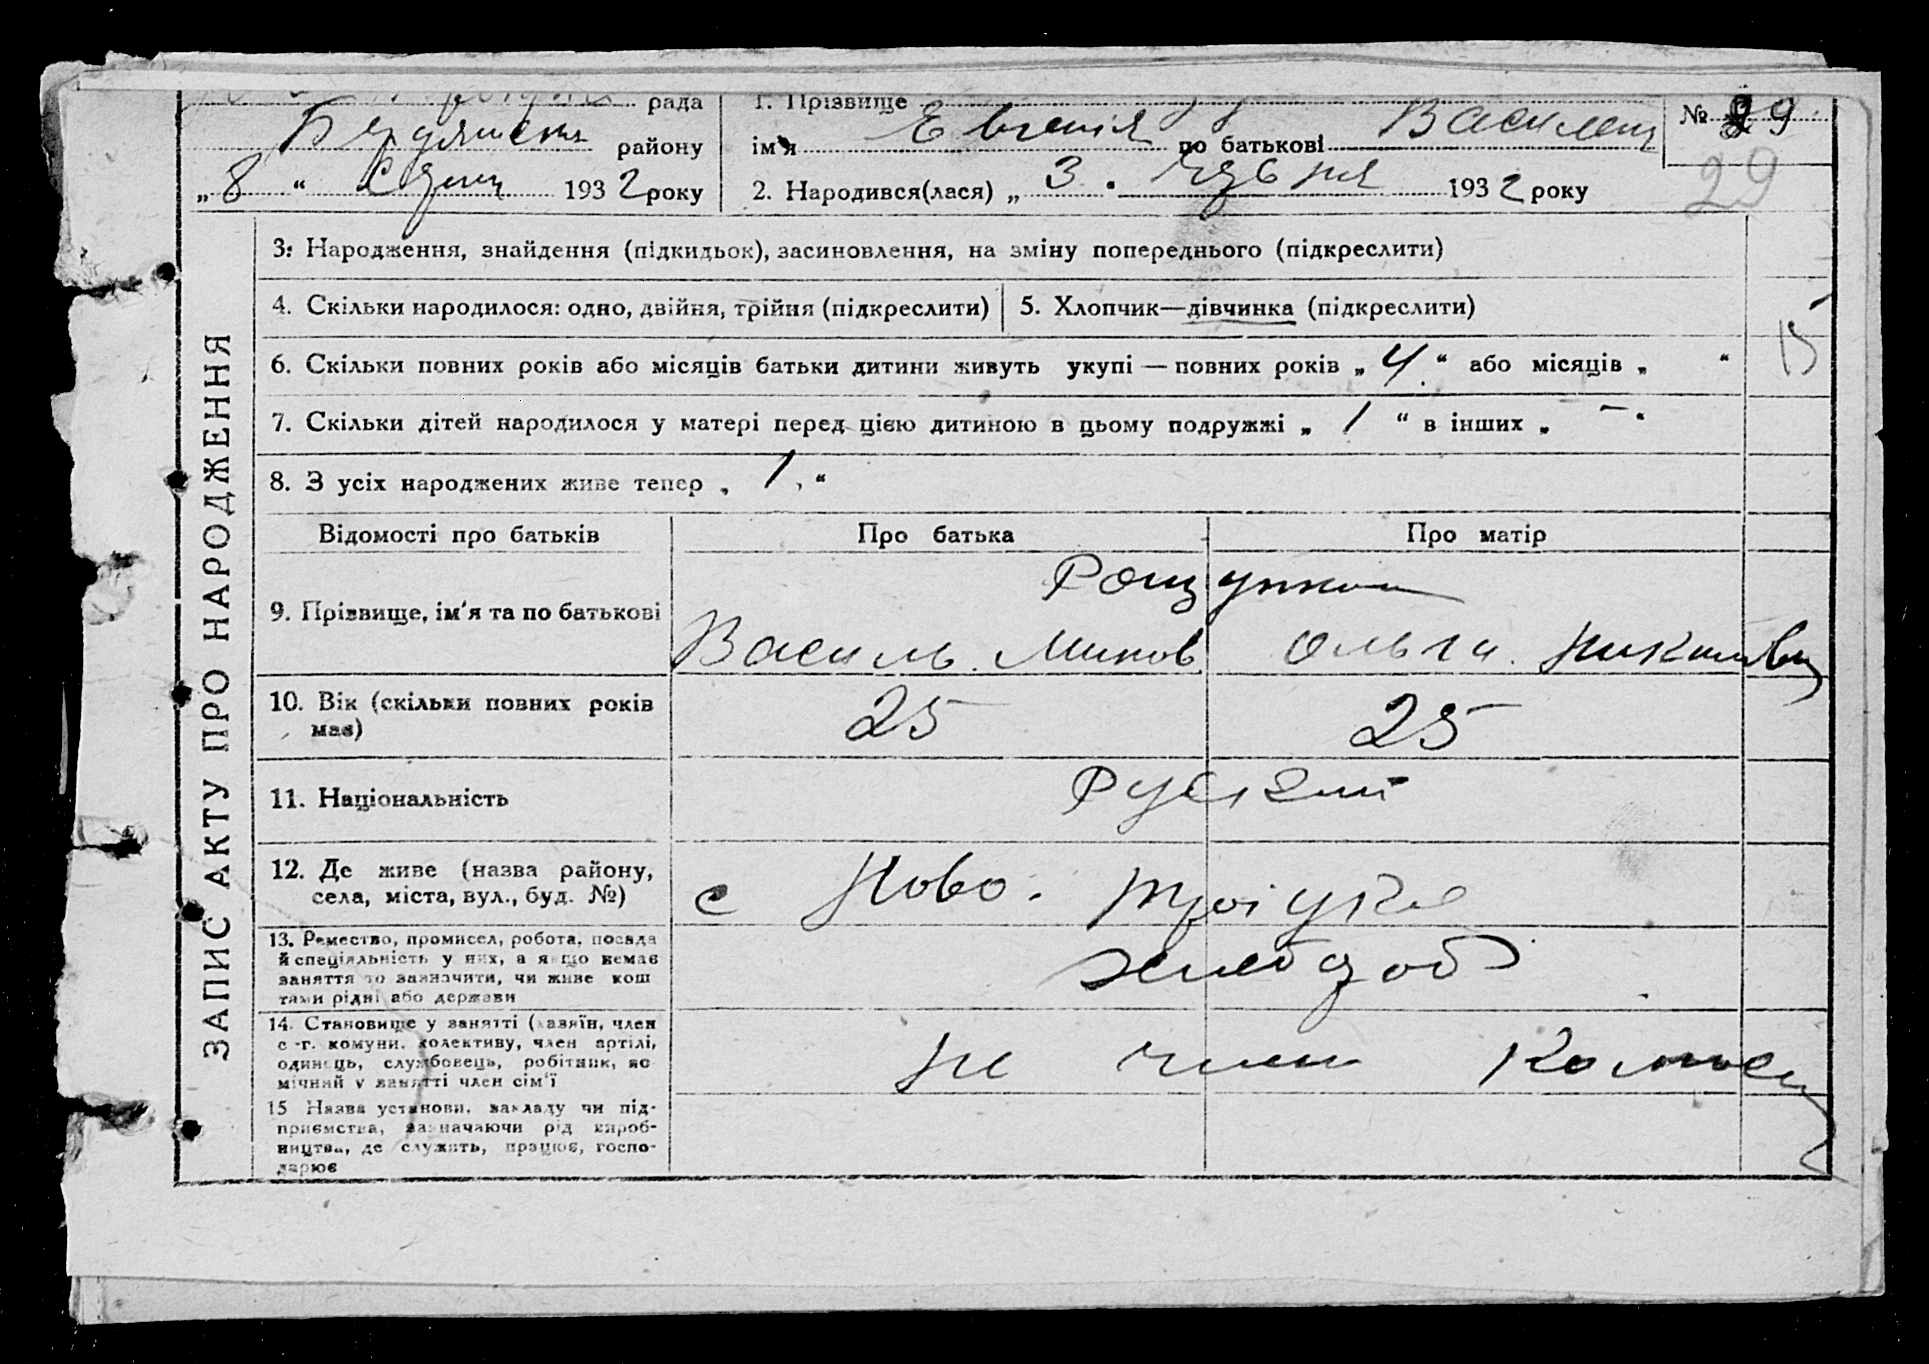 рада
Бердянськ району
„ 8 “ 193 2 року
1. Прізвище
ім'я Евгенія по батькові Василев
2. Народився(лася) „ 3 . Червня 193 2 року
№ 29
29
ЗАПИС АКТУ ПРО НАРОДЖЕННЯ
3. Народження, знайдення (підкидьок), засиновлення, на зміну попереднього (підкреслити)
4. Скільки народилося: одно, двійня, трійня (підкреслити)
5. Хлопчик—дівчинка (підкреслити)
6. Скільки повних років або місяців батьки дитини живуть укупі — повних років „ 4 “ або місяців „ “
15
7. Скільки дітей народилося у матері перед цією дитиною в цьому подружжі „ 1 “ в інших „ – “
8. З усіх народжених живе тепер „ 1 “
Відомості про батьків
Про батька
Про матір
9. Прізвище, ім'я та по батькові
Василь Минов
Ольга
10. Вік (скільки повних років
має)
25
25
11. Національність
Руский
12. Де живе (назва району,
села, міста, вул., буд. №)
с Ново. Троіцке
13. Ремество, промисел, робота, посада
й спеціяльність у них, а якщо немає
заняття то зазначити, чи живе кош
тами рідні або держави
хлебороб
14. Становище у занятті (хазяїн, член
с.-г. комуни, колективу, член артілі,
одинець, службовець, робітник, по
мічний у занятті член сім'ї
не член
15 Назва установи, закладу чи під-
приємства, зазначаючи рід вироб-
ництва, де служить, працює, госпо-
дарює